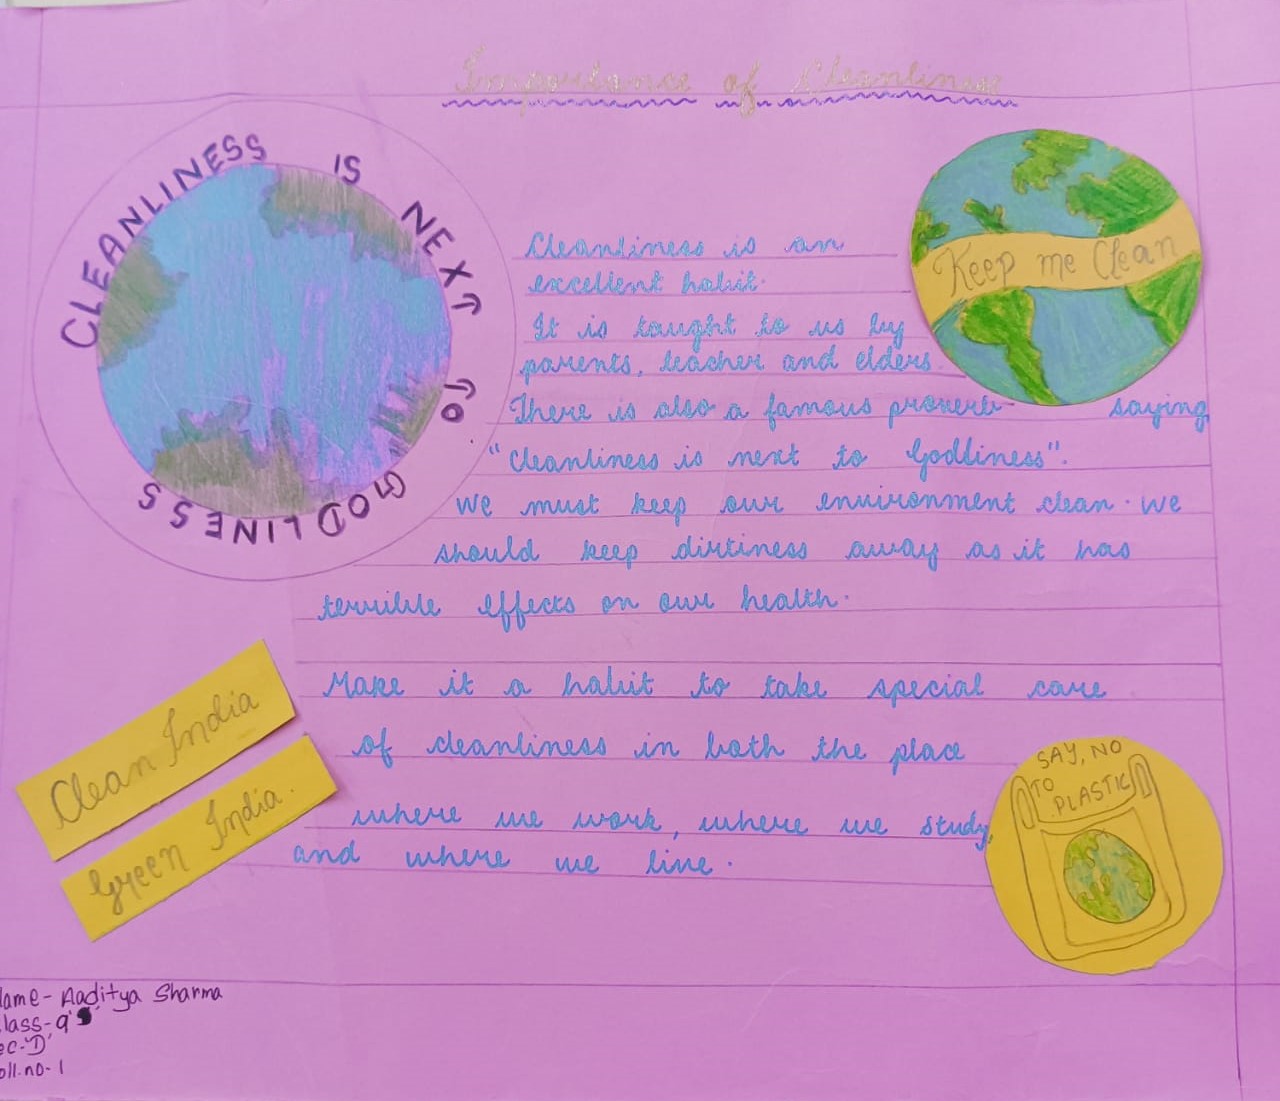 Importance of Cleanliness
CLEANLINESS IS NEXT TO GODLINESS
Keep me Clean
Cleanliness is an
excellent habit.
It is taught to us by
parents, teacher and elders.
There is also a famous proverb saying
"Cleanliness is next to Godliness".
We must keep our environment clean. We
should keep dirtiness away as it has
terrible effects on our health.
Make it a habit to take special care
of cleanliness in both the place
where we work, where we study,
and where we live.
Clean India
Green India.
SAY, NO
TO PLASTIC
Name- Aaditya Sharma
Class- 9
Sec-'D'
Roll.no- 1